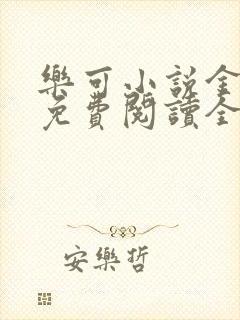 樂可小說全
免費閱讀全
安樂哲